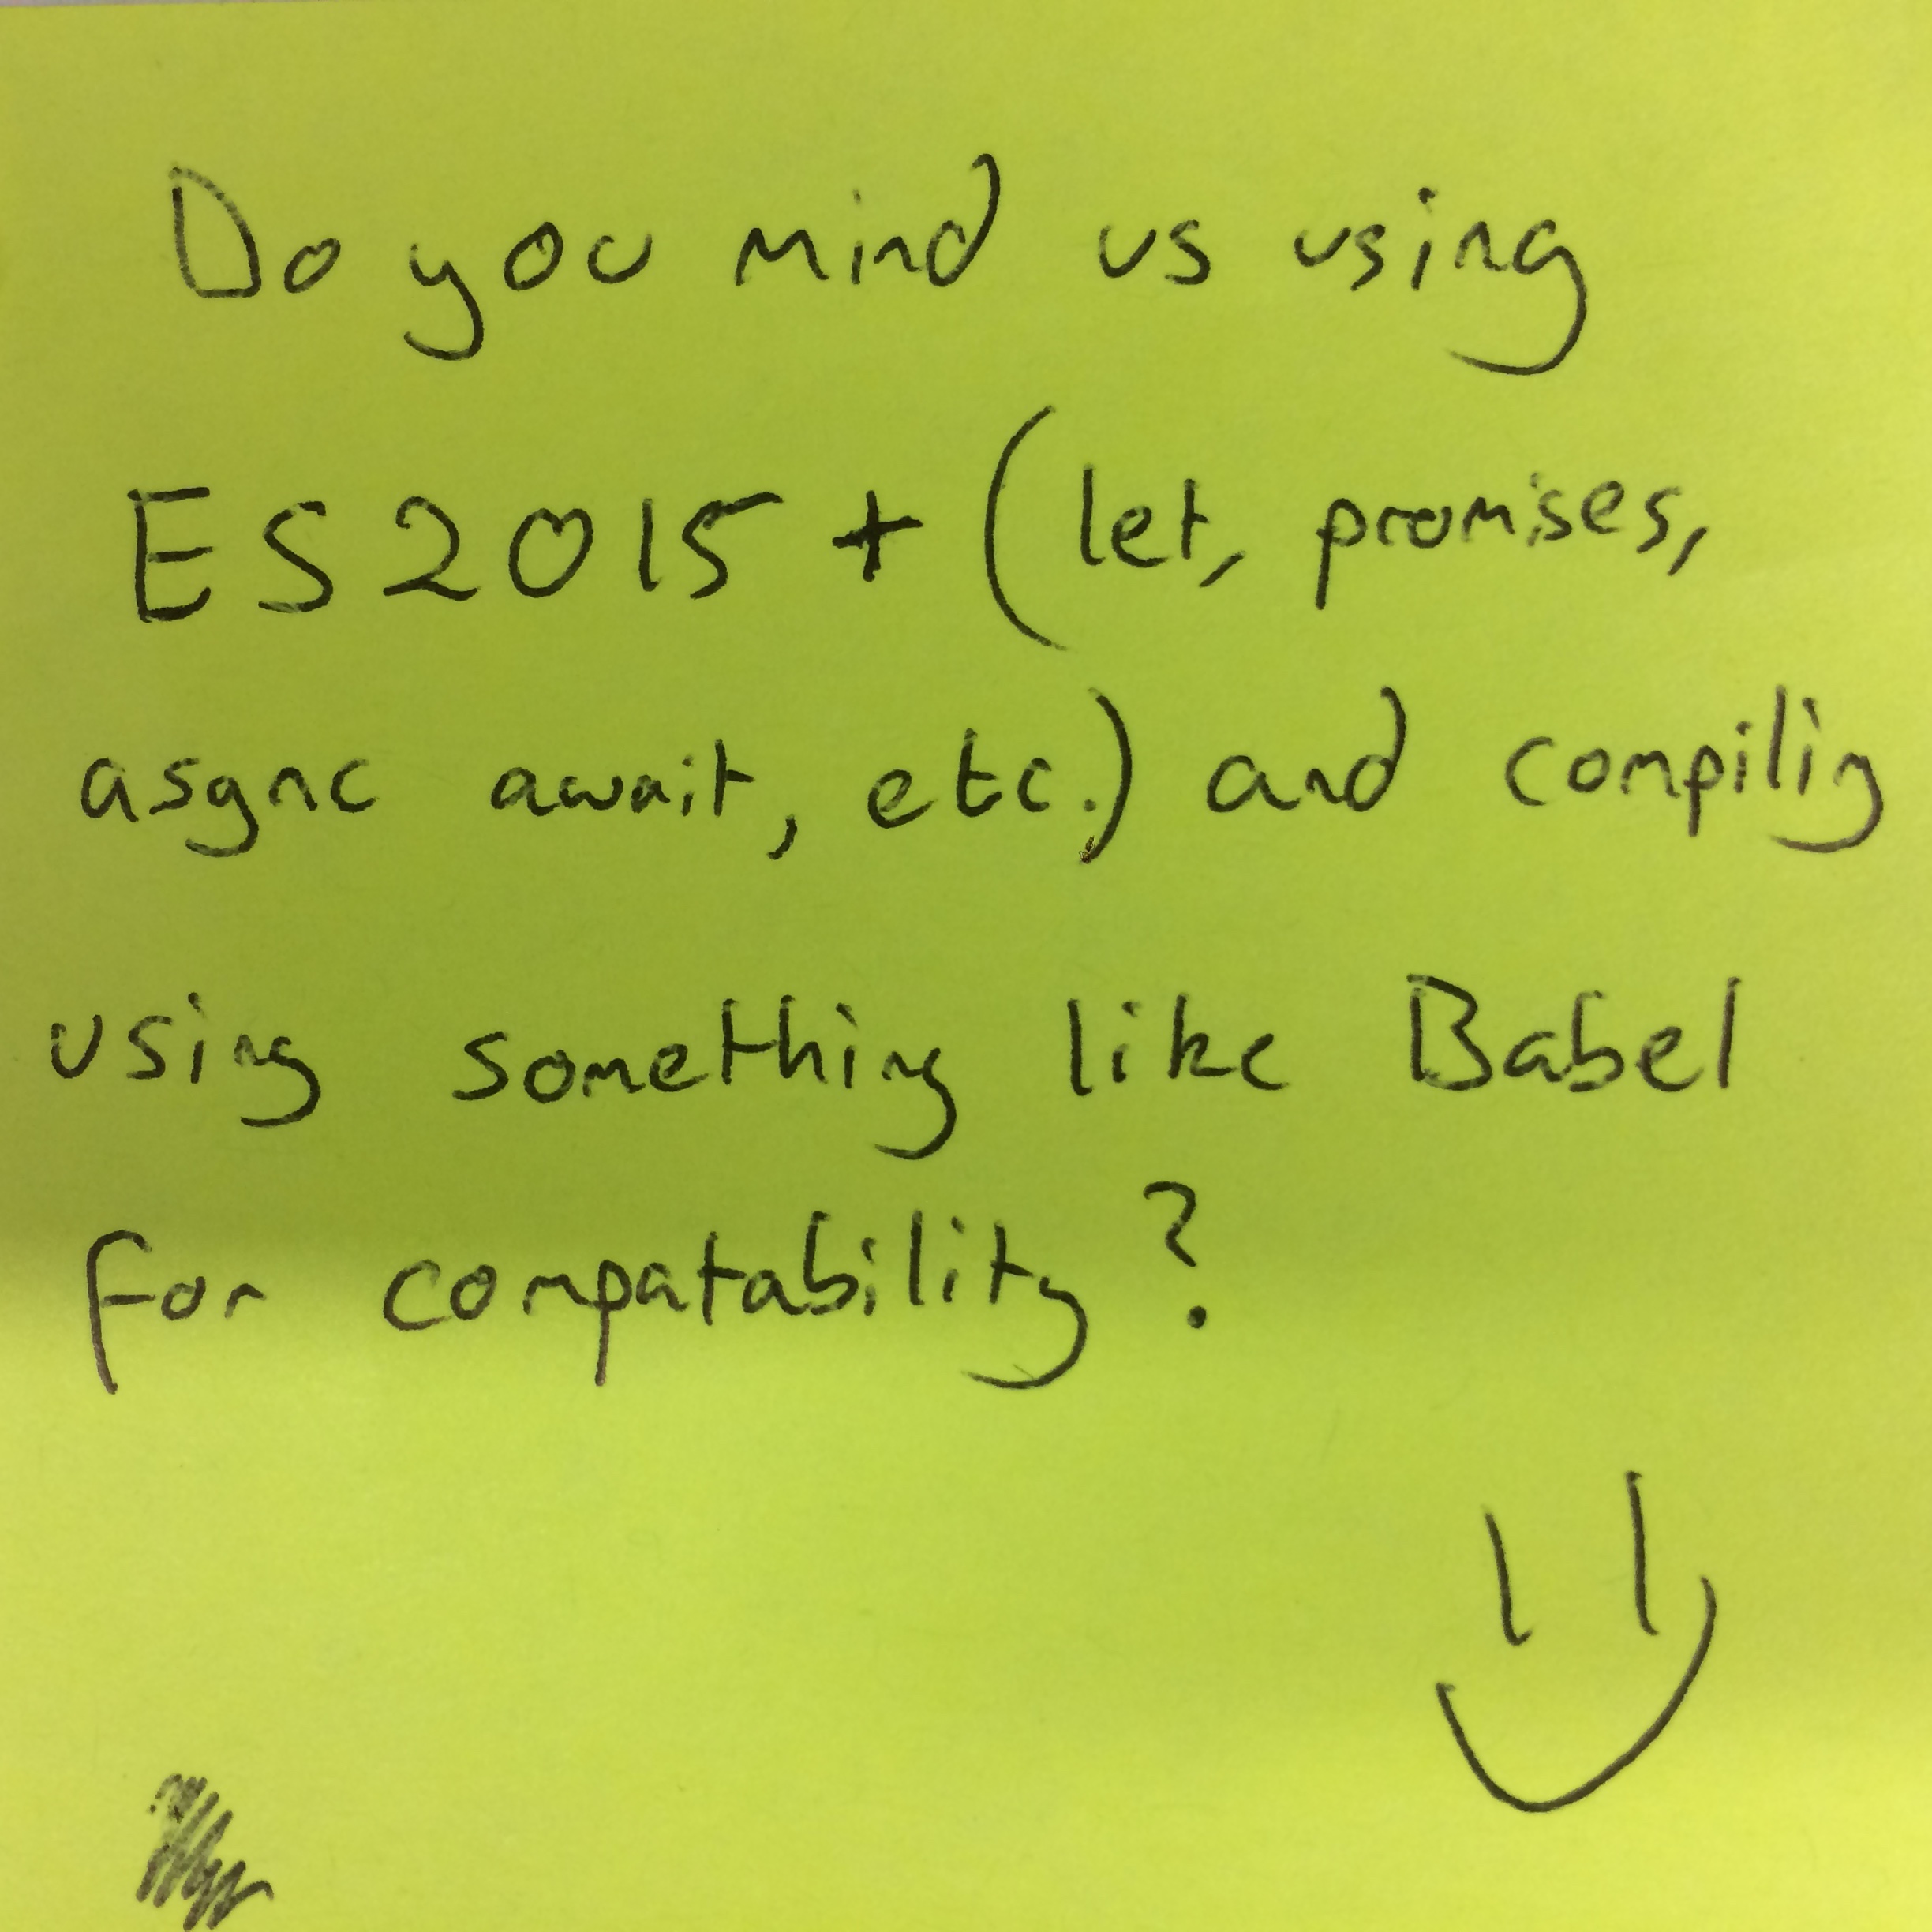 Do you mind us using
ES2015 + (let, promises,
async await, etc.) and compilig
using something like Babel
for compatability?